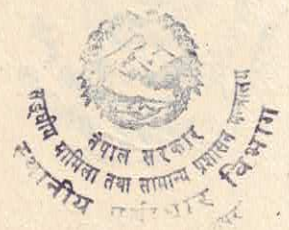 नेपाल सरकार
सङ्घीय मामिला तथा सामान्य प्रशासन मन्त्रालय
स्थानीय पूर्वाधार विभाग